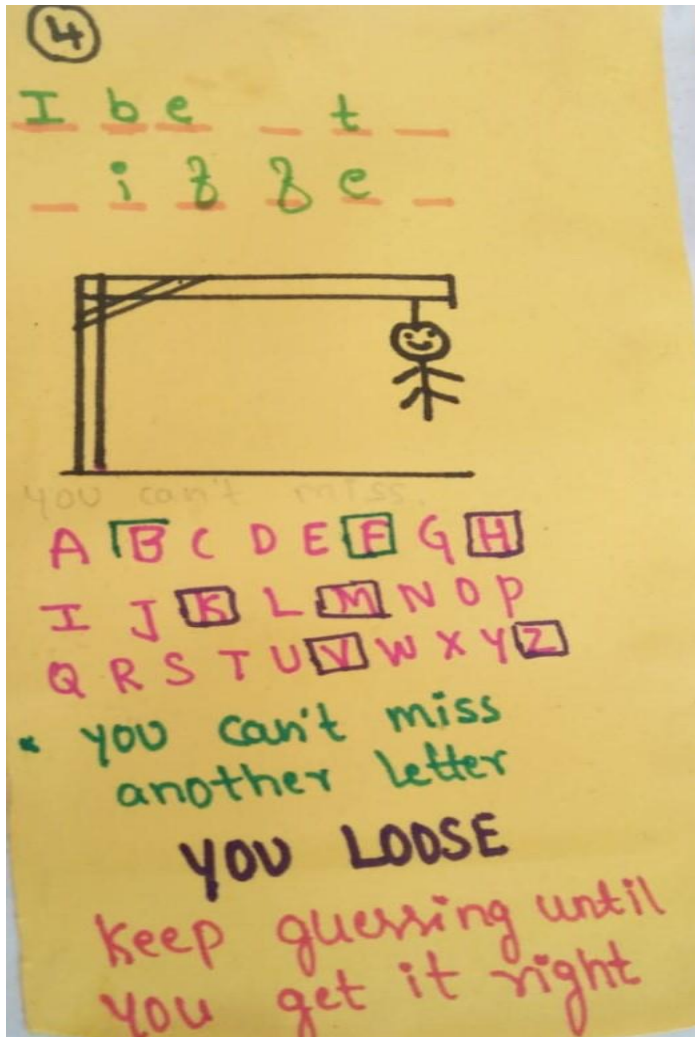 4
I b e _ t _
_ i z z e _
you can't miss.
A B C D E F G H
I J K L M N O P
Q R S T U V W X Y Z
• you can't miss
another letter
YOU LOOSE
Keep guessing until
you get it right